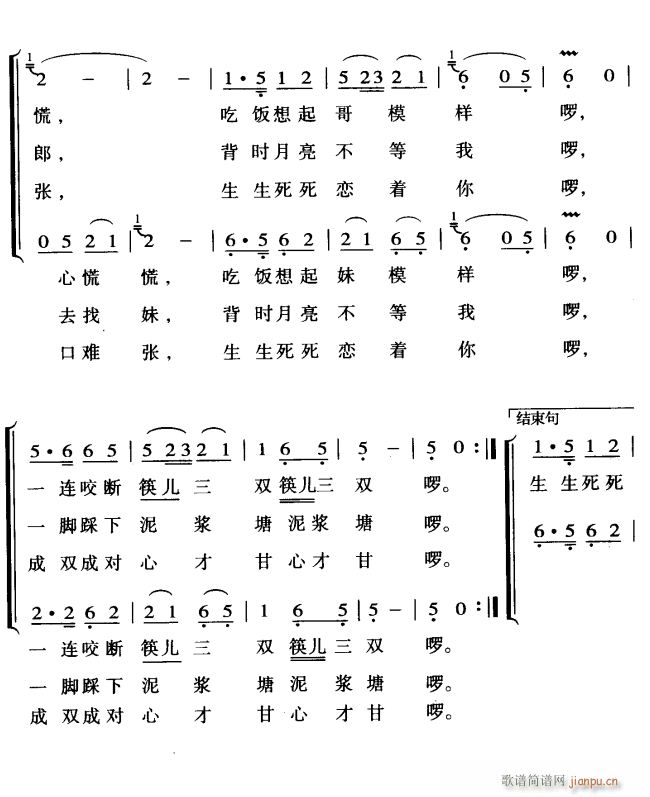 1
2 - | 2 - | 1·5 1 2 | 5 23 2 1 | 1 6 0 5 | 6 0 |
慌， 吃饭想起哥模样啰，
郎， 背时月亮不等我啰，
张， 生生死死恋着你啰，
0 5 2 1 | 1 2 - | 6·5 6 2 | 2 1 6 5 | 1 6 0 5 | 6 0 |
心慌慌， 吃饭想起妹模样啰，
去找妹， 背时月亮不等我啰，
口难张， 生生死死恋着你啰，
结束句
5·6 6 5 | 5 23 2 1 | 1 6 5 | 5 - | 5 0 :‖ 1·5 1 2 |
一连咬断筷儿三双筷儿三双啰。 生生死死
一脚踩下泥浆塘泥浆塘啰。
成双成对心才甘心才甘啰。
6·5 6 2 |
2·2 6 2 | 2 1 6 5 | 1 6 5 | 5 - | 5 0 :‖
一连咬断筷儿三双筷儿三双啰。
一脚踩下泥浆塘泥浆塘啰。
成双成对心才甘心才甘啰。
歌谱简谱网 jianpu.cn